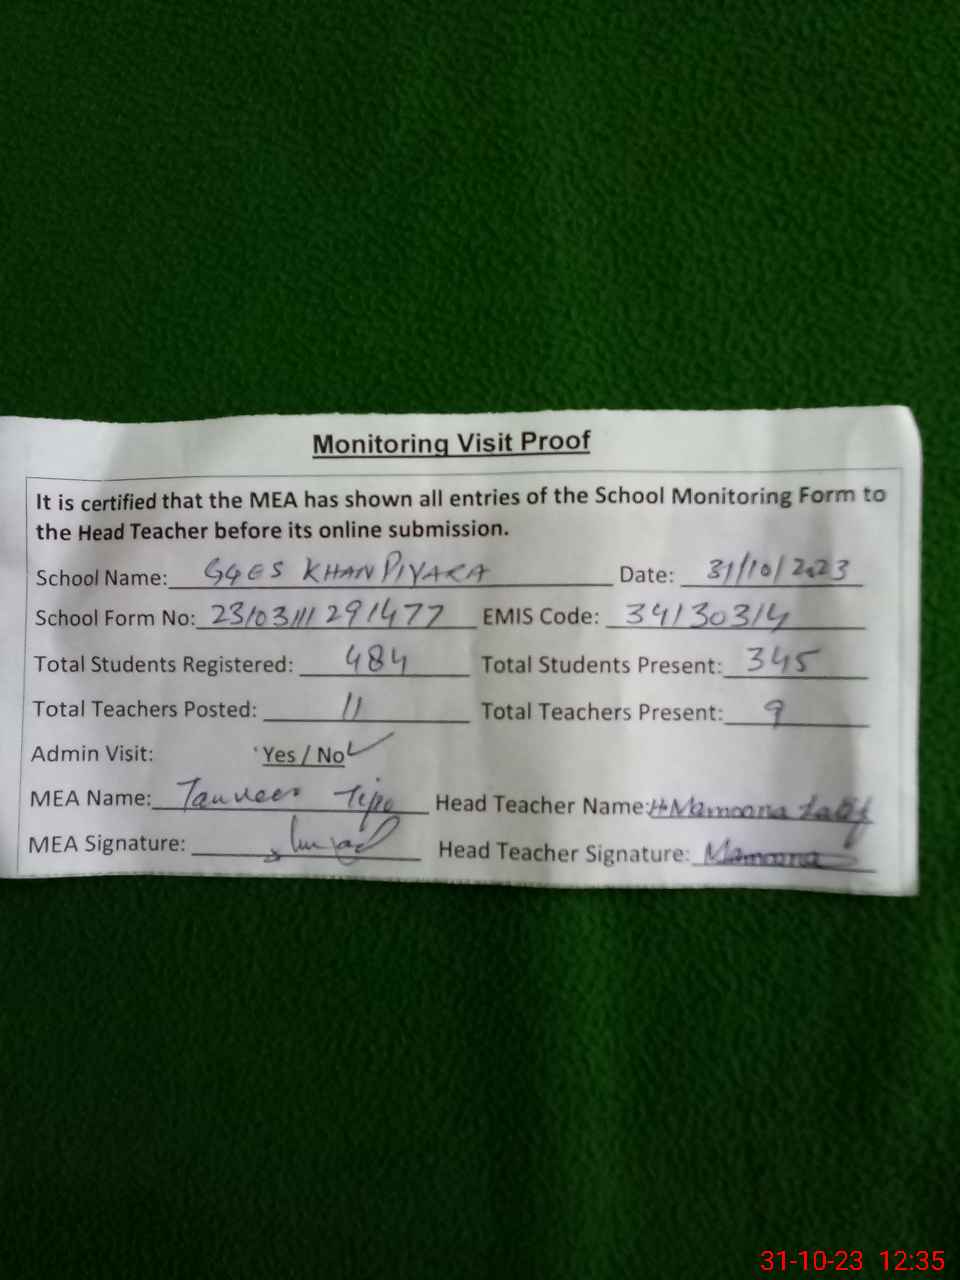 Monitoring Visit Proof
It is certified that the MEA has shown all entries of the School Monitoring Form to
the Head Teacher before its online submission.
School Name: GGES KHAN PIYARA Date: 31/10/2023
School Form No: 23/03/11/291477 EMIS Code: 34130314
Total Students Registered: 484 Total Students Present: 345
Total Teachers Posted: 11 Total Teachers Present: 9
Admin Visit: Yes / No ✓
MEA Name: Tanveer Tipo Head Teacher Name: Mamoona
MEA Signature: Head Teacher Signature: Mamoona
31-10-23 12:35